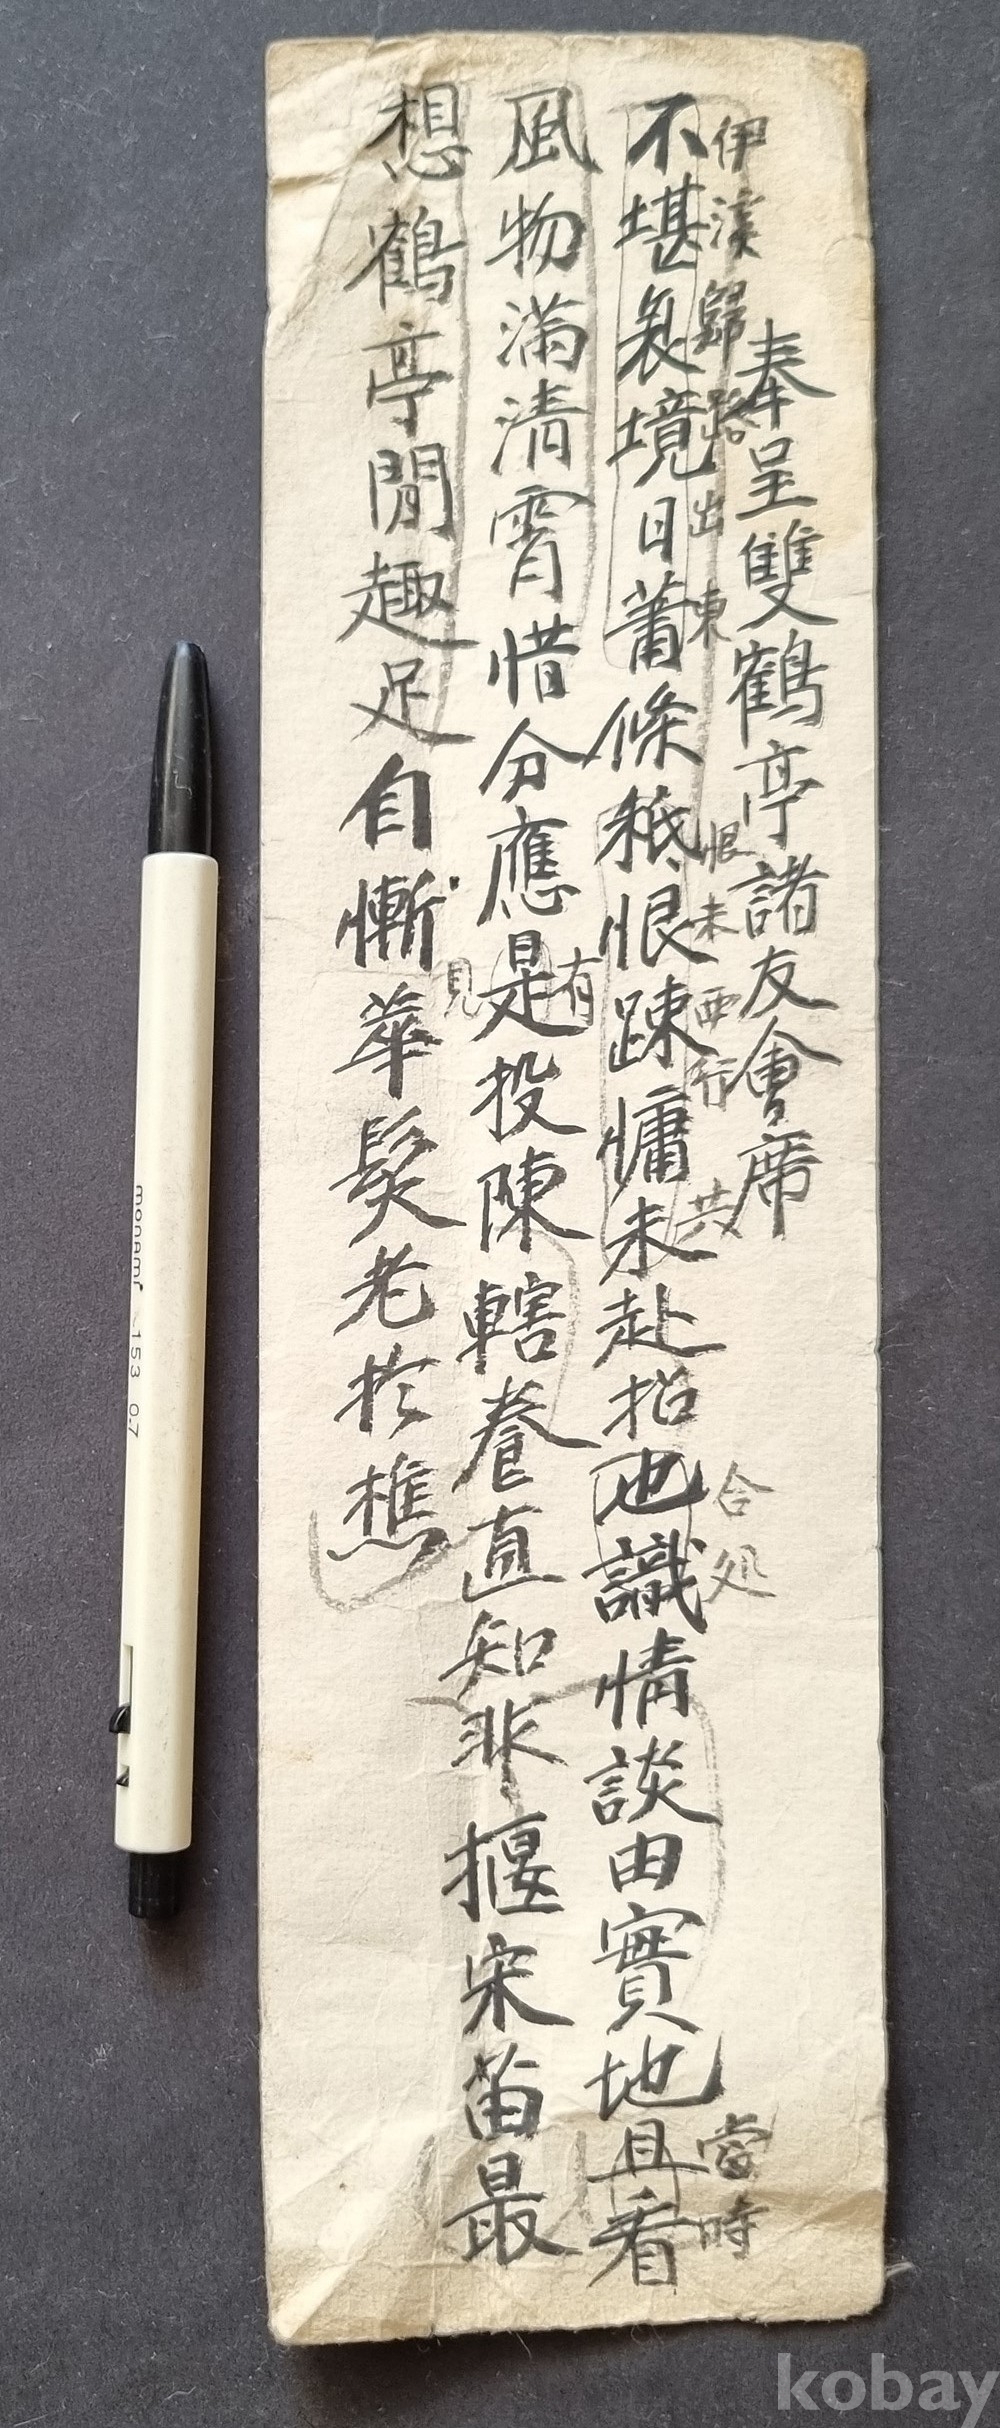 奉呈雙鶴亭諸友會席
伊溪歸路出東 恨未西行共 合処 當時
不堪製境日蕭條秪恨踈慵未赴招也識情談由實地且看
有
風物滿清霄惜分應是投陳轄養直知非揠宋苗最
見
想鶴亭閒趣足自慚華髮老扵樵
monami 153 0.7
kobay